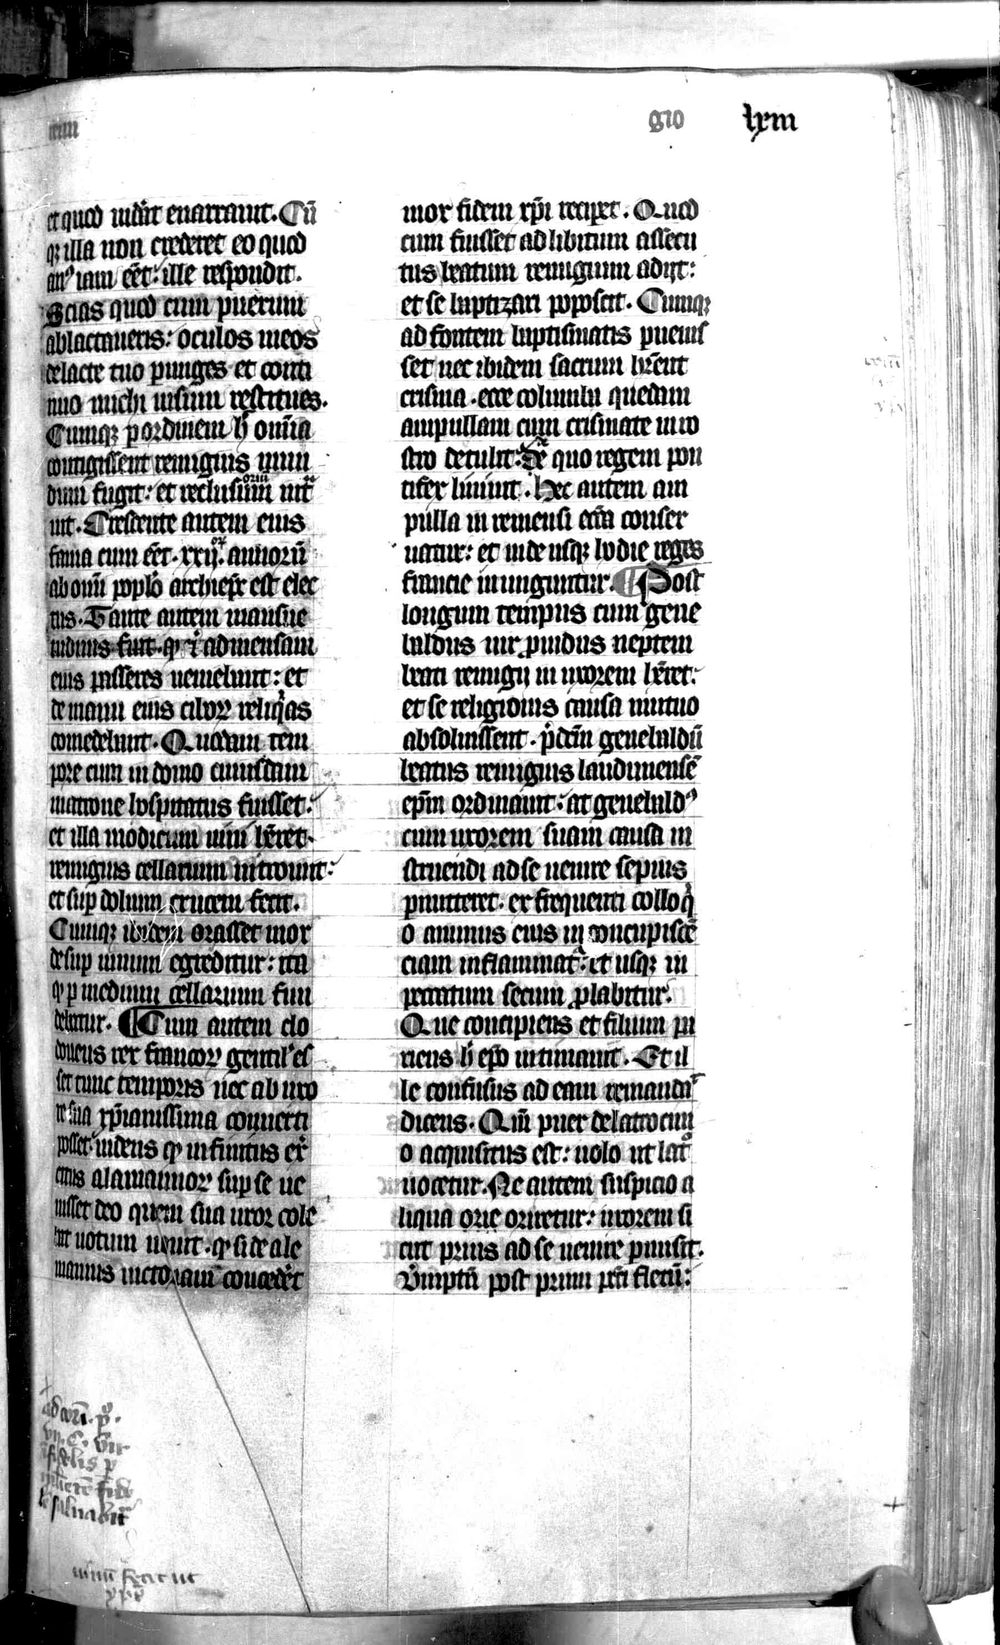 gio lxiii
et quod uidit enarrauit. Cũ
qꝫ illa non crederet eo quod
anꝰ iam eẽt: ille respondit.
Scias quod cum puerum
ablactaueris: oculos meos
de lacte tuo ꝑunges et conti
nuo michi uisum restitues.
Cumqꝫ ꝑ ordinem h̄ omĩa
contigissent remigius mun
dum fugit: et reclusoriũ int̾
uit. Crescente autem eius
fama cum eẽt .xxij. annorũ
ab omĩ pop̃lo archiep̃s est elec
tus. Tante autem mansue
tudinis fuit ꝙ ĩ ad mensam
eius passeres ueniebant: et
de manu eius ciboꝝ reliq̾as
comedebant. Quodam tem
pore cum in domo cuiusdam
matrone hospitatus fuisset:
et illa modicum uini hr̃et.
remigius cellarium introiuit:
et sup̱ dolium crucem fecit.
Cumqꝫ ibidem orasset mox
desup̱ uinum egreditur: ita
ꝙ ꝑ medium cellarium fun
debatur. ¶ Cum autem clo
doueus rex francoꝝ gentilˀ es
set tunc temporis nec ab uxo
re sua xp̃ianissima conuerti
posset: uidens ꝙ infinitus ex̾
citus alamannoꝝ sup̱ se ue
nisset deo quem sua uxor cole
bat uotum uouit. ꝙ si de ale
mannis uictoriam concedˀet
mox fidem xp̃i recip̱et. Quod
cum fuisset ad libitum assecu
tus beatum remigium adijt:
et se baptizari poposcit. Cumqꝫ
ad fontem baptismatis ꝑuenis
set nec ibidem sacrum hr̃ent
crisma. ecce columba quedam
ampullam cum crismate in ro
stro detulit: de quo regem pon
tifex liniuit. Hec autem am
pulla in remensi ecc̃a conser
uatur: et inde usqꝫ hodie reges
francie inunguntur. ¶ Post
longum tempus cum gene
baldus uir ꝓuidus neptem
beati remigij in uxorem hr̃et:
et se religionis causa mutuo
absoluissent. p̾dc̃m genebaldũ
beatus remigius laudunensẽ
ep̃m ordinauit: at genebaldꝰ
cum uxorem suam causa in
struendi ad se uenire sepius
ꝑmitteret. ex frequenti colloq̾
o animus eius in concupiscẽ
ciam inflammat̾: et usqꝫ in
peccatum secum ꝓlabitur.
Que concipiens et filium pa
riens h̄ ep̃o intimauit. Et il
le confusus ad eam remandat
dicens. Qm̃ puer de latrocini
o acquisitus est: uolo ut latˀo
uocetur. Ne autem suspicio a
liqua orie oriretur: uxorem si
cut prius ad se uenire ꝑmisit.
Verũptñ post primi pc̃ti fletũ:
uir